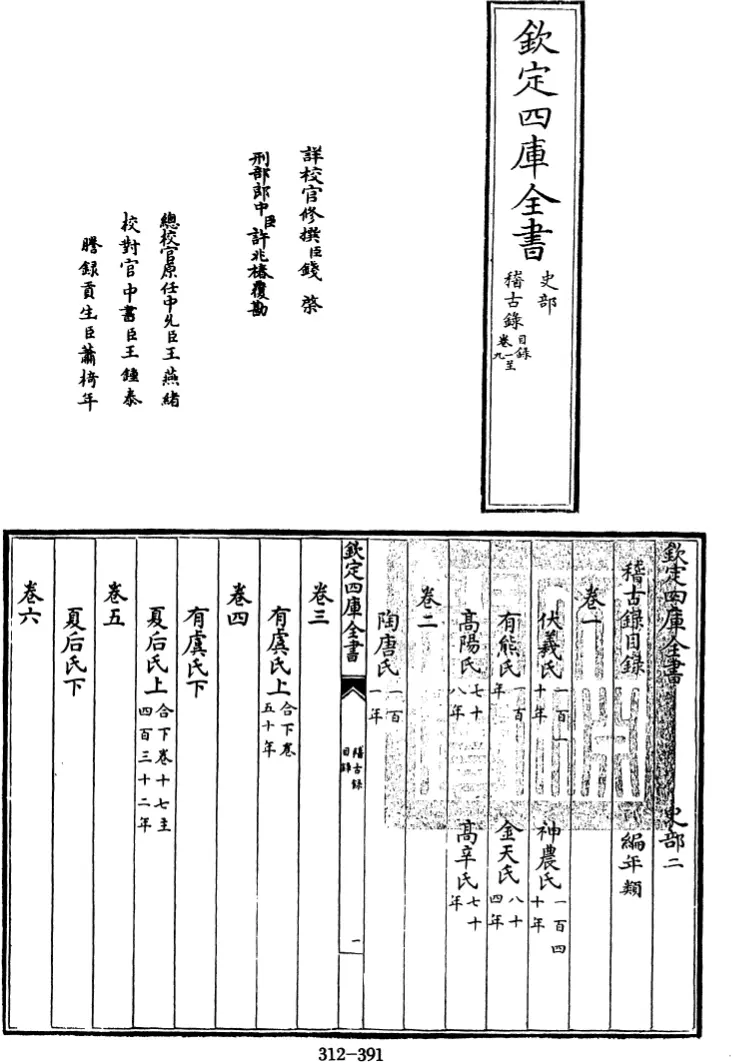 欽定四庫全書
史部
稽古錄
目錄
卷一至九
詳校官修撰臣錢棨
刑部郎中臣許兆椿覆勘
總校官原任中允臣王燕緒
校對官中書臣王鍾泰
謄錄貢生臣蕭椅年
欽定四庫全書 史部二
稽古錄目錄 編年類
卷一
伏羲氏一百一十年 神農氏一百四十年
有熊氏一百年 金天氏八十四年
高陽氏七十八年 高辛氏七十年
卷二
陶唐氏一百一年
欽定四庫全書
稽古錄
目錄
一
卷三
有虞氏上合下卷五十年
卷四
有虞氏下
夏后氏上合下卷十七主四百三十二年
卷五
夏后氏下
卷六
312-391